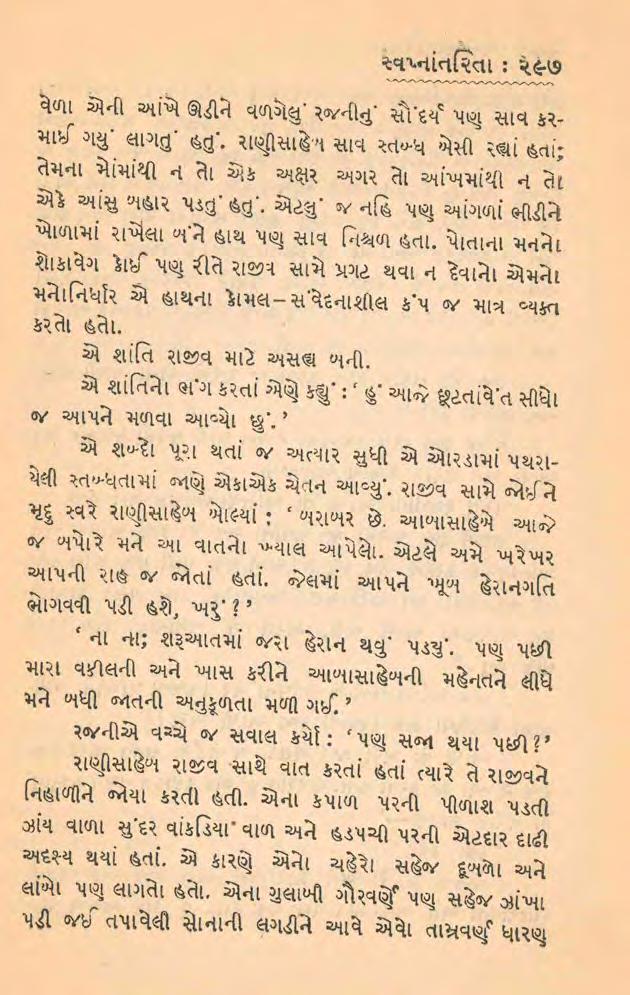 સ્વપ્નાંતરિતા : ૨૯૭
વેળા એની આંખે ઊડીને વળગેલું રજનીનું સૌંદર્ય પણ સાવ કર-
માઈ ગયું લાગતું હતું. રાણીસાહેબ સાવ સ્તબ્ધ બેસી રહ્યાં હતાં;
તેમના મોંમાંથી ન તો એક અક્ષર અગર તો આંખમાંથી ન તો
એકે આંસુ બહાર પડતું હતું. એટલું જ નહિ પણ આંગળાં ભીડીને
ખોળામાં રાખેલા બંને હાથ પણ સાવ નિશ્ચળ હતા. પોતાના મનનો
શોકાવેગ કોઈ પણ રીતે રાજીવ સામે પ્રગટ થવા ન દેવાનો એમનો
મનોનિર્ધાર એ હાથના કોમલ–સંવેદનાશીલ કંપ જ માત્ર વ્યક્ત
કરતો હતો.
એ શાંતિ રાજીવ માટે અસહ્ય બની.
એ શાંતિનો ભંગ કરતાં એણે કહ્યું : ‘ હું આજે છૂટતાંવેંત સીધો
જ આપને મળવા આવ્યો છું. ’
એ શબ્દો પૂરા થતાં જ અત્યાર સુધી એ ઓરડામાં પથરા-
યેલી સ્તબ્ધતામાં જાણે એકાએક ચેતન આવ્યું. રાજીવ સામે જોઈને
મૃદુ સ્વરે રાણીસાહેબ બોલ્યાં : ‘ બરાબર છે. આબાસાહેબે આજે
જ બપોરે મને આ વાતનો ખ્યાલ આપેલો. એટલે અમે ખરેખર
આપની રાહ જ જોતાં હતાં. જેલમાં આપને ખૂબ હેરાનગતિ
ભોગવવી પડી હશે, ખરું ? ’
‘ ના ના; શરૂઆતમાં જરા હેરાન થવું પડયું. પણ પછી
મારા વકીલની અને ખાસ કરીને આબાસાહેબની મહેનતને લીધે
મને બધી જાતની અનુકૂળતા મળી ગઈ. ’
રજનીએ વચ્ચે જ સવાલ કર્યો : ‘ પણ સજા થયા પછી ? ’
રાણીસાહેબ રાજીવ સાથે વાત કરતાં હતાં ત્યારે તે રાજીવને
નિહાળીને જોયા કરતી હતી. એના કપાળ પરની પીળાશ પડતી
ઝાંય વાળા સુંદર વાંકડિયા વાળ અને હડપચી પરની એટદાર દાઢી
અદશ્ય થયાં હતાં. એ કારણે એનો ચહેરો સહેજ દૂબળો અને
લાંબો પણ લાગતો હતો. એના ગુલાબી ગૌરવર્ણે પણ સહેજ ઝાંખા
પડી જઈ તપાવેલી સોનાની લગડીને આવે એવો તામ્રવર્ણ ધારણ